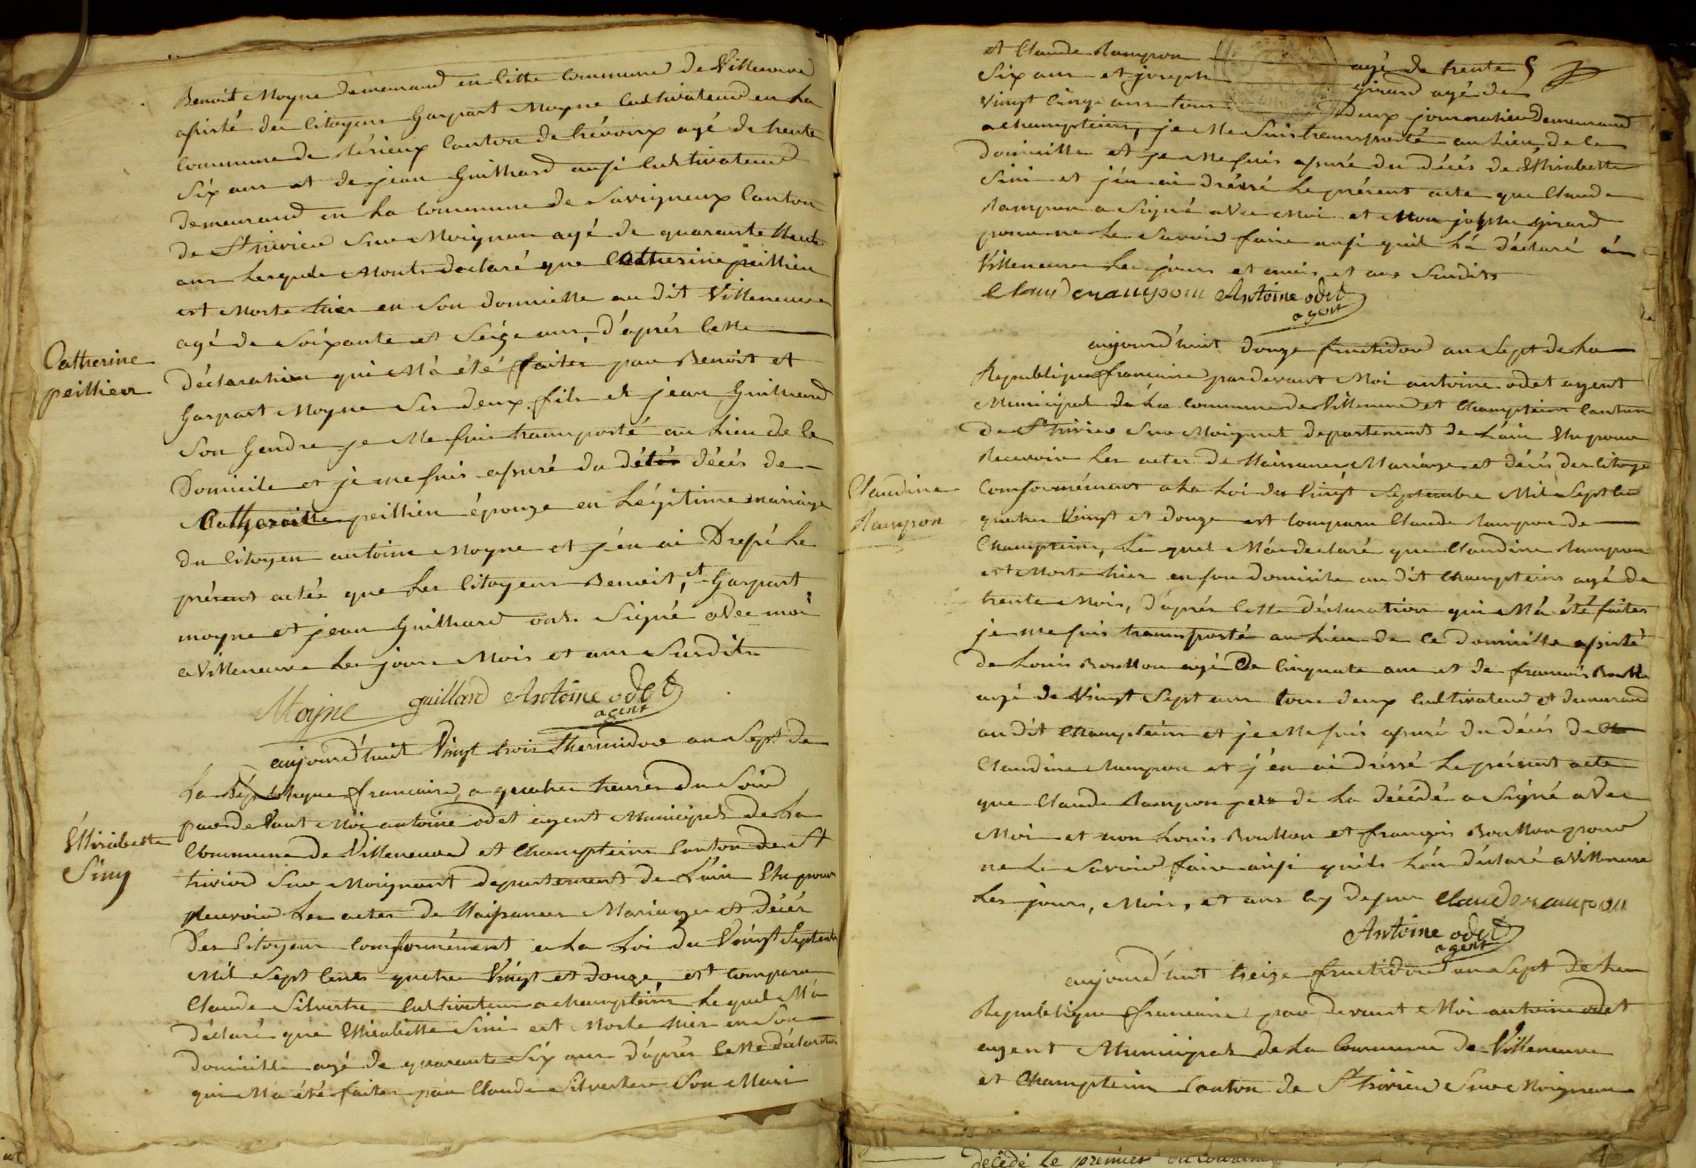 Benoit Moyne demeurand en cette commune de Villeneuve
assisté des citoyens Gaspart Moyne cultivateur en la
commune de Mérieux canton de trévoux agé de trente
Six ans et de jean Guillard aussi cultivateur
demeurand en la commune de Savigneux canton
de St trivier Sur Moignan agé de quarante
ans lesquels Mont declaré que Catherine peillieu
est Morte hier en Son domicille au dit Villeneuve
agé de Soixante et Seize ans, d'aprés cette
Catherine
déclaration qui M'a été faites par Benoit et
peillieu
Gaspart Moyne Ses deux fils et jean Guillard
Son Gendre je Me suis transporté au lieu de le
Domicile et je me suis assuré du décés de
Catherine peillieu épouze en Légitime mariage
du Citoyen antoine Moyne et j'en ai Dressé le
présent acte que les Citoyens Benoit, et Gaspart
moyne et jean Guillard ont Signé avec moi
a Villeneuve les jour Mois et ans Susdits
Moyne guillard Antoine odet
agent
aujourd'huit Vingt trois thermidor an Sept de
La République francaise, a quatre heures du Soir
pardevant Moi antoine odet agent Municipal de la
Ethisabette
Commune de Villeneuve et Champtein Canton de St
Siny
trivier Sur Moignant departement de Lain Elu pour
recevoir les actes de Naissances Mariages et décés
Des Citoyens conformément a la Loi du Vingt Septembre
Mil Sept Cents quatre Vingt et douze, est comparu
Claude Silvestre Cultivateur a champteins le quel M'a
déclaré que Ethisabette Sini est Morte hier en Son
domicille agé de quarante Six ans d'aprés cette déclaration
qui Ma été faites par Claude Silvestre Son Mari
et Claude Rampon agé de trente
Six ans et joseph girard agé de
Vingt Cinq ans tous deux journaliers Demeurand
a champteins, je Me Suis transporté au lieu de le
domicille et je Me suis assuré du décés de Ethisabette
Sini et j'en ai dréssé le présent acte que Claude
Rampon a Signé avec Moi et Non joseph Girard
pour ne le Savoir faire ainsi qu'il l'a déclaré á
Villeneuve les jours et mois et ans Susdits
Claude rampon Antoine odet
agent
aujourd'huit douze fructidor an Sept de la
Republique francaise pardevant Moi antoine odet agent
Municipal de la Commune de Villeneuve et Champtein Canton
de St trivier Sur Moignet departement de Lain Elu pour
Recevoir les actes de Naissances Mariage et décés des Citoyens
Claudine
Conformément a la Loi du Vingt Septembre Mil Sept Cent
Rampon
quatre Vingt et douze est Comparu Claude Rampon de
Champteins, le quel M'a déclaré que Claudine Rampon
est Morte hier en son domicile au dit Champteins agé de
trente Mois, d'aprés cette déclaration qui M'a été faites
je me suis transporté au lieu de ce domicille assisté
de Louis Boullon agé de Cinquate ans et de francois Boullon
agé de Vingt Sept ans tous deux Cultivateur et demeurand
au dit Champteins et je Me suis assuré du décés de
Claudine Rampon et j'en ai dréssé le présent acte
que Claude Rampon pere de la décédé a Signé avec
Moi et non Louis Boullon et françois Boullon pour
ne le Savoir faire ainsi qu'ils l'on déclaré a Villeneuve
les jours, Mois, et ans cy dessus Claude rampon
Antoine odet
agent
aujourd'huit treize fructidor an Sept de la
Republique francaise par devant Moi antoine odet
agent Municipal de la Commune de Villeneuve
et Champtein Canton de St trivier Sur Moignan
décédé le premier du courant